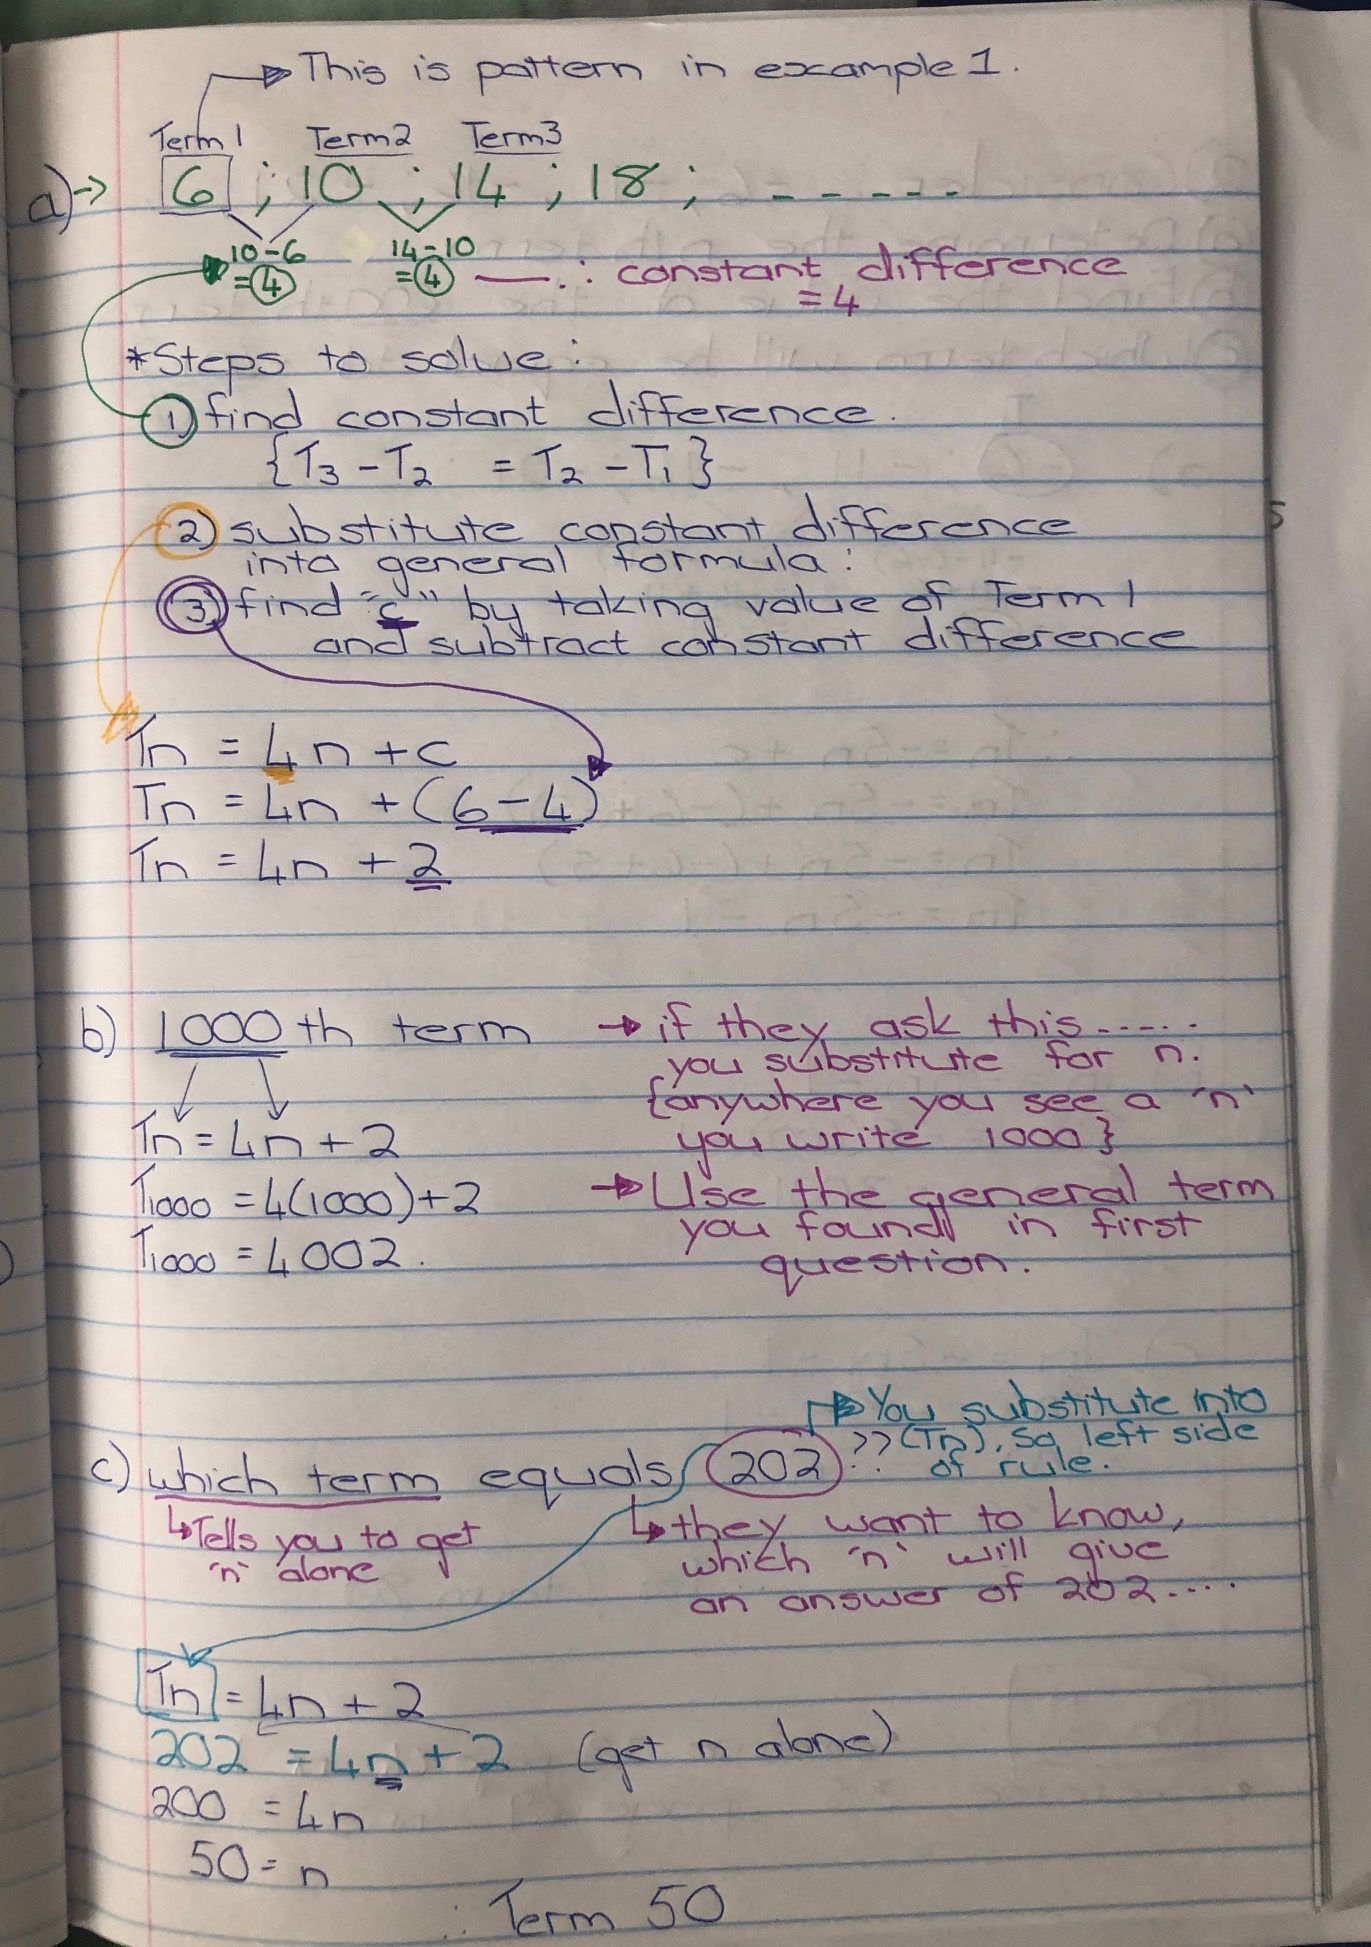 This is pattern in example 1.
Term 1 Term 2 Term 3
a) → 6 ; 10 ; 14 ; 18 ; - - - - - -
10-6 14-10
=4 =4 —— ∴ constant difference
= 4
*Steps to solve:
① find constant difference.
{T₃ - T₂ = T₂ - T₁}
② substitute constant difference
into general formula:
③ find "c" by taking value of Term 1
and subtract constant difference
Tn = 4n + c
Tn = 4n + (6 - 4)
Tn = 4n + 2
b) 1000th term → if they ask this......
you substitute for n.
{anywhere you see a 'n'
you write 1000}
Tn = 4n + 2
T1000 = 4(1000) + 2 → Use the general term
you found in first
T1000 = 4 002.
question.
You substitute into
(Tn), so left side
of rule.
c) which term equals 202??
↳ Tells you to get
'n' alone
↳ they want to know,
which 'n' will give
an answer of 202.....
Tn = 4n + 2
202 = 4n + 2 (get n alone)
200 = 4n
50 = n
∴ Term 50